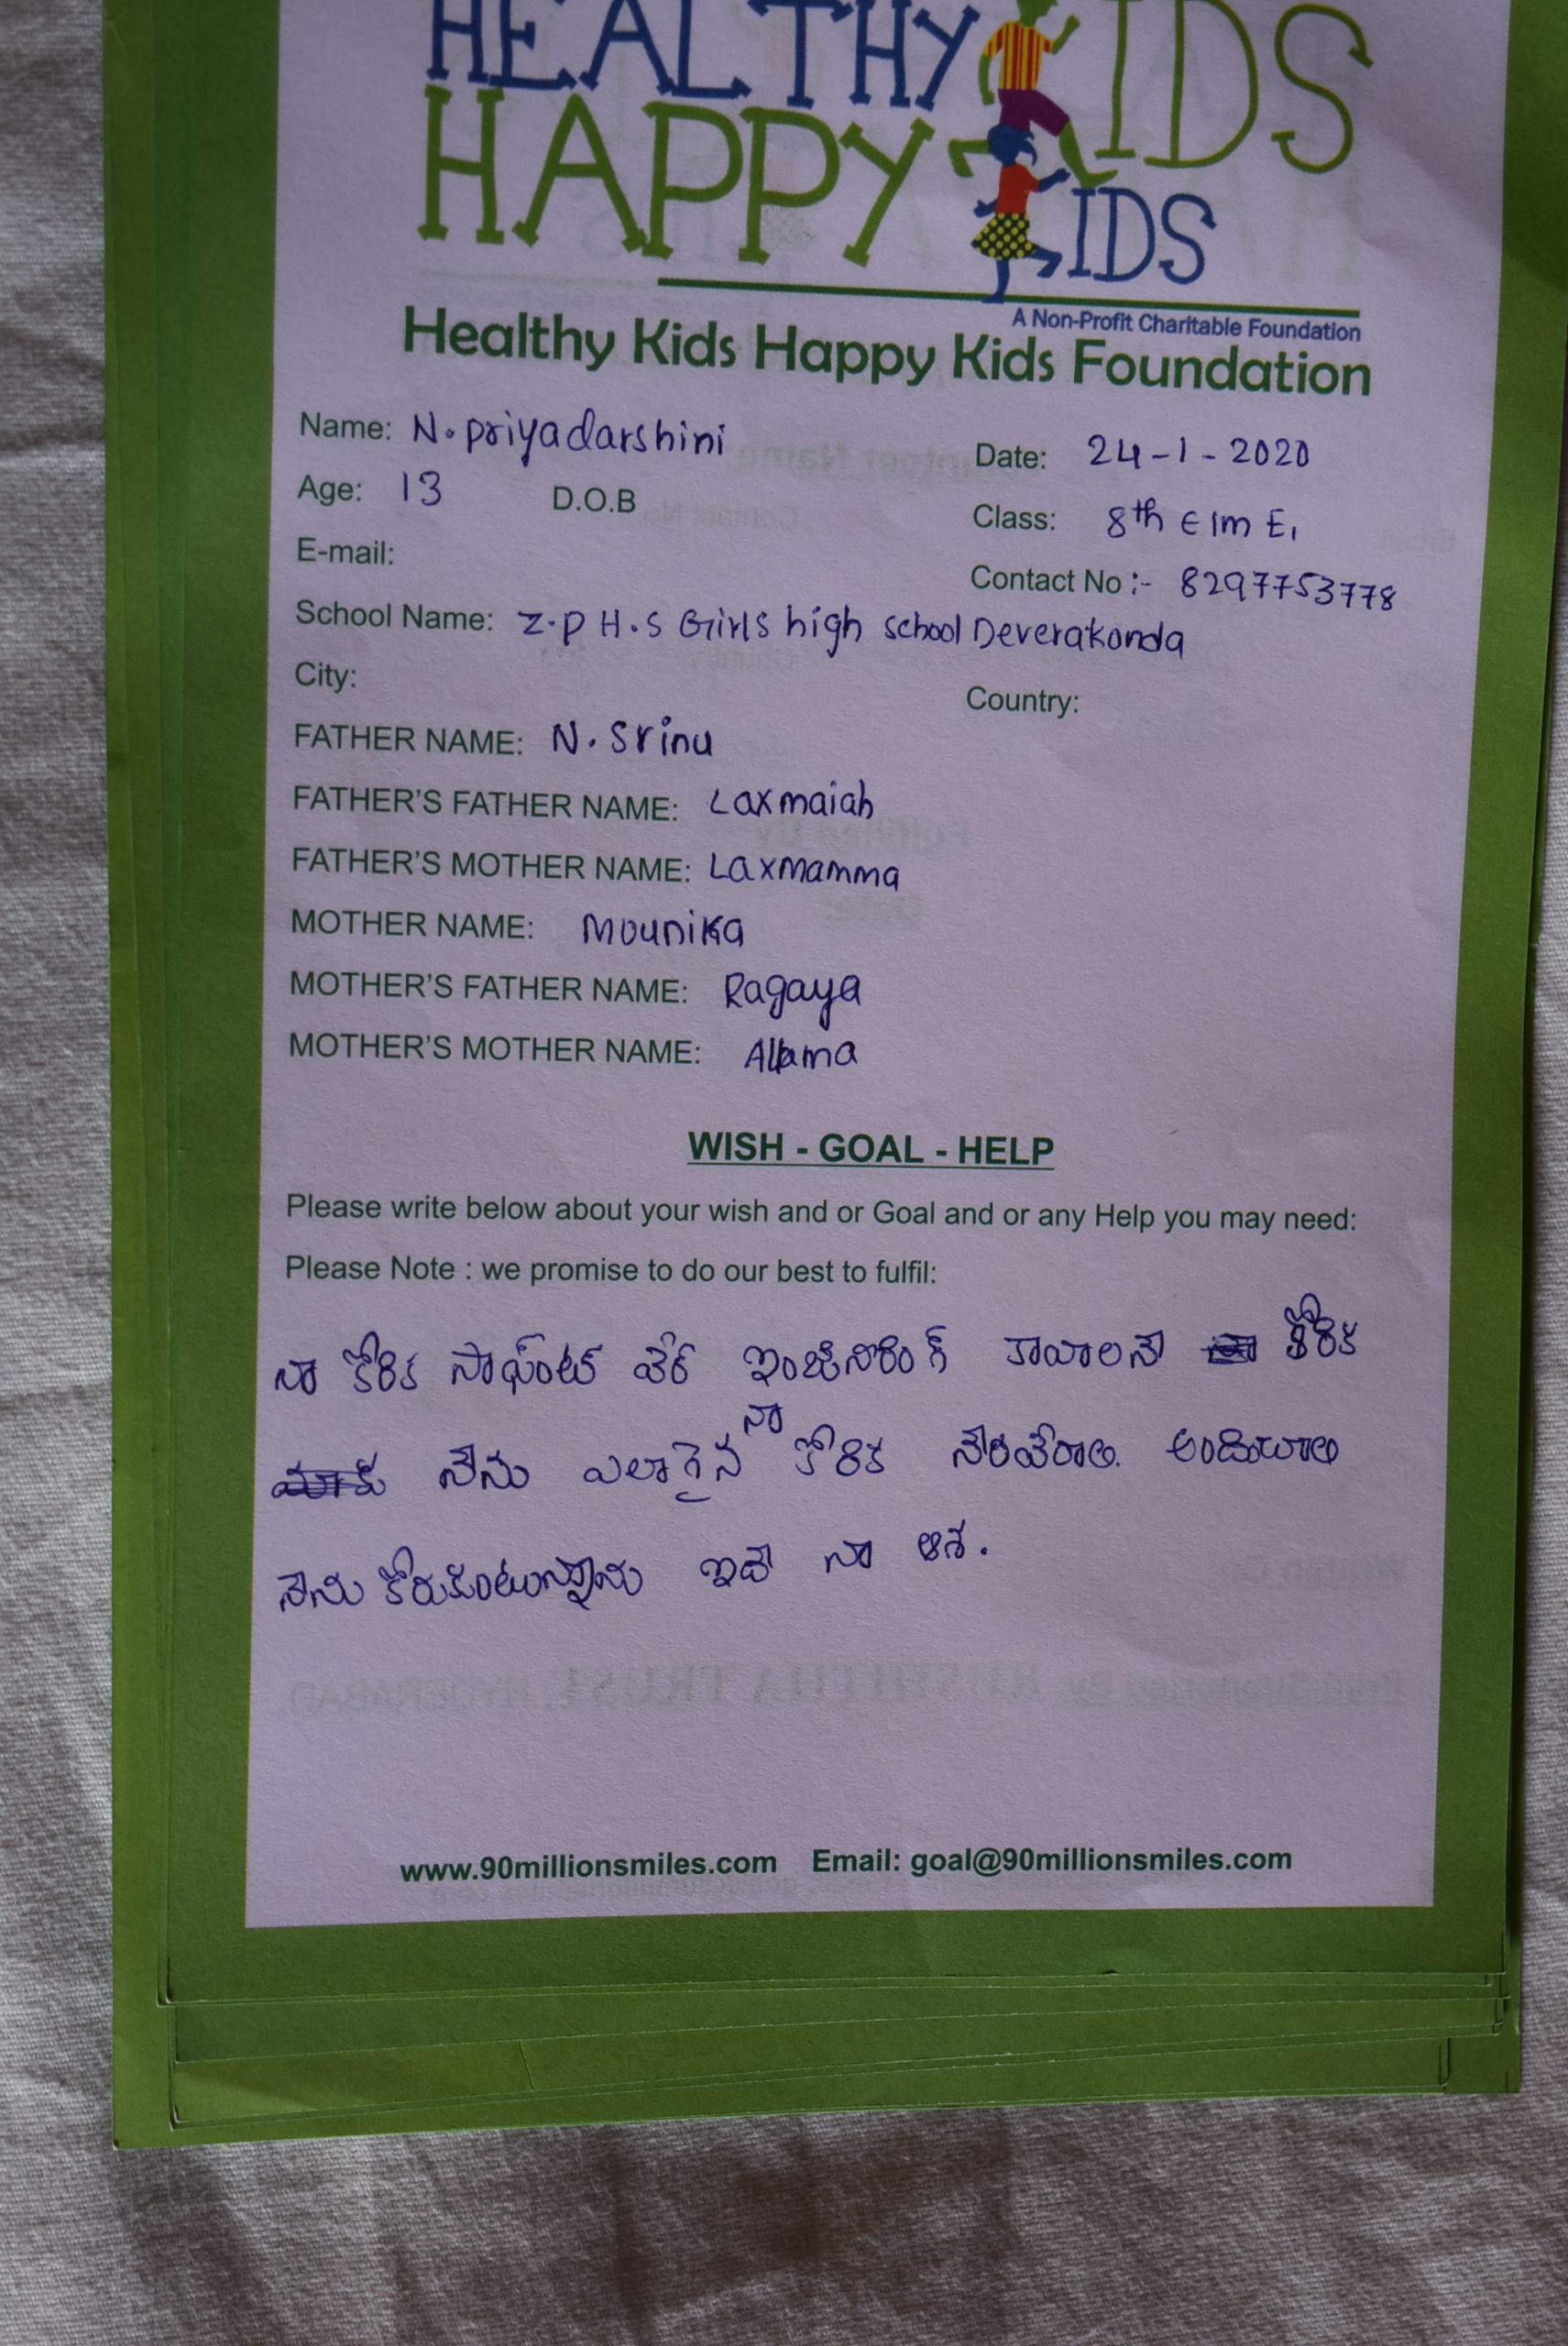 HEALTHY KIDS
HAPPY KIDS
A Non-Profit Charitable Foundation
Healthy Kids Happy Kids Foundation
Name: N. priyadarshini Date: 24-1-2020
Age: 13 D.O.B Class: 8th E Im E1
E-mail: Contact No :- 8297753778
School Name: Z.P H.S Girls high school Deverakonda
City: Country:
FATHER NAME: N. Srinu
FATHER'S FATHER NAME: Laxmaiah
FATHER'S MOTHER NAME: Laxmamma
MOTHER NAME: Mounika
MOTHER'S FATHER NAME: Ragaya
MOTHER'S MOTHER NAME:
WISH - GOAL - HELP
Please write below about your wish and or Goal and or any Help you may need:
Please Note : we promise to do our best to fulfil:
నా కోరిక సాఫ్ంట్ వేర్ ఇంజినీరింగ్ కావాలనే కోరిక
నేను ఎలాగైన నా కోరిక నేరవేరాలి. అందుజాల
నేను కోరుకుంటున్నాను ఇదే నా ఆశ.
www.90millionsmiles.com Email: goal@90millionsmiles.com